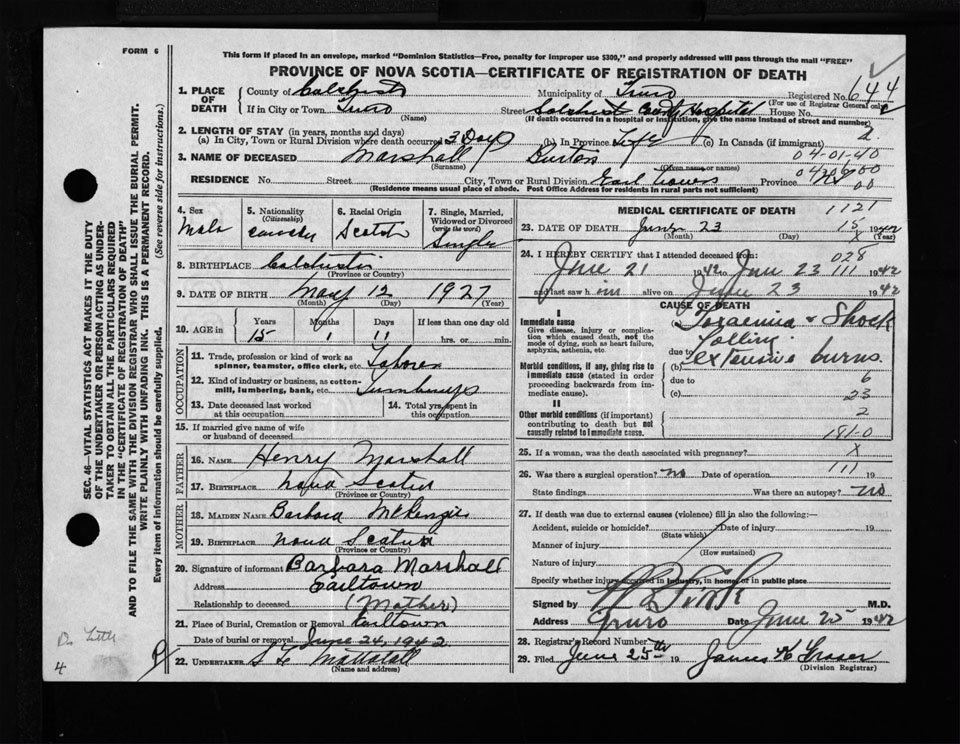 FORM 6
This form if placed in an envelope, marked "Dominion Statistics—Free, penalty for improper use $300," and properly addressed will pass through the mail "FREE"
PROVINCE OF NOVA SCOTIA—CERTIFICATE OF REGISTRATION OF DEATH
1. PLACE OF DEATH
County of Colchester Municipality of Truro Registered No. 644
(For use of Registrar General only)
If in City or Town Truro Street Colchester County Hospital House No.
(Name) (If death occurred in a hospital or institution, give the name instead of street and number)
2. LENGTH OF STAY (in years, months and days)
(a) In City, Town or Rural Division where death occurred 3 Days (b) In Province Life (c) In Canada (if immigrant)
3. NAME OF DECEASED Marshall Burton 04-01-40
(Surname) (Given name or names)
RESIDENCE No. Street City, Town or Rural Division Earltown Province N.S.
(Residence means usual place of abode. Post Office Address for residents in rural parts not sufficient) 00
4. Sex Male
5. Nationality (Citizenship)
6. Racial Origin Scotch
7. Single, Married, Widowed or Divorced (write the word) Single
8. BIRTHPLACE Colchester
(Province or Country)
9. DATE OF BIRTH May 12 1927
(Month) (Day) (Year)
10. AGE in Years Months Days If less than one day old
15 1 11 hrs. or min.
OCCUPATION
11. Trade, profession or kind of work as spinner, teamster, office clerk, etc. Laborer
12. Kind of industry or business, as cotton-mill, lumbering, bank, etc.
13. Date deceased last worked at this occupation
14. Total yrs. spent in this occupation
15. If married give name of wife or husband of deceased
FATHER
16. NAME Henry Marshall
17. BIRTHPLACE Nova Scotia
(Province or Country)
MOTHER
18. MAIDEN NAME Barbara McKenzie
19. BIRTHPLACE Nova Scotia
(Province or Country)
20. Signature of informant Barbara Marshall
Address Earltown
Relationship to deceased (Mother)
21. Place of Burial, Cremation or Removal Earltown
Date of burial or removal June 24, 1942
22. UNDERTAKER Mattatall
(Name and address)
MEDICAL CERTIFICATE OF DEATH 1121
23. DATE OF DEATH June 23 15 1942
(Month) (Day) X (Year)
24. I HEREBY CERTIFY that I attended deceased from: 028
June 21 1942 to June 23 111 1942
and last saw him alive on June 23 1942
CAUSE OF DEATH
I
Immediate cause
Give disease, injury or complication which caused death, not the mode of dying, such as heart failure, asphyxia, asthenia, etc.
Toxaemia & Shock
due to
(b) extensive burns
Morbid conditions, if any, giving rise to immediate cause (stated in order proceeding backwards from immediate cause).
due to 6
(c) 23
II
Other morbid conditions (if important) contributing to death but not causally related to immediate cause.
2
181-0
25. If a woman, was the death associated with pregnancy? X
26. Was there a surgical operation? no Date of operation 111 19
State findings Was there an autopsy? no
27. If death was due to external causes (violence) fill in also the following:—
Accident, suicide or homicide? Date of injury 19
(State which)
Manner of injury
(How sustained)
Nature of injury
Specify whether injury occurred in industry, in home, or in public place
Signed by M.D.
Address Truro Date June 25 1942
28. Registrar's Record Number
29. Filed June 25th 19 James K Fraser
(Division Registrar)
SEC. 46—VITAL STATISTICS ACT MAKES IT THE DUTY
OF THE UNDERTAKER OR PERSON ACTING AS UNDERTAKER TO OBTAIN ALL THE PARTICULARS REQUIRED
IN THE "CERTIFICATE OF REGISTRATION OF DEATH"
AND TO FILE THE SAME WITH THE DIVISION REGISTRAR WHO SHALL ISSUE THE BURIAL PERMIT.
WRITE PLAINLY WITH UNFADING INK. THIS IS A PERMANENT RECORD.
Every item of information should be carefully supplied. (See reverse side for instructions.)
4